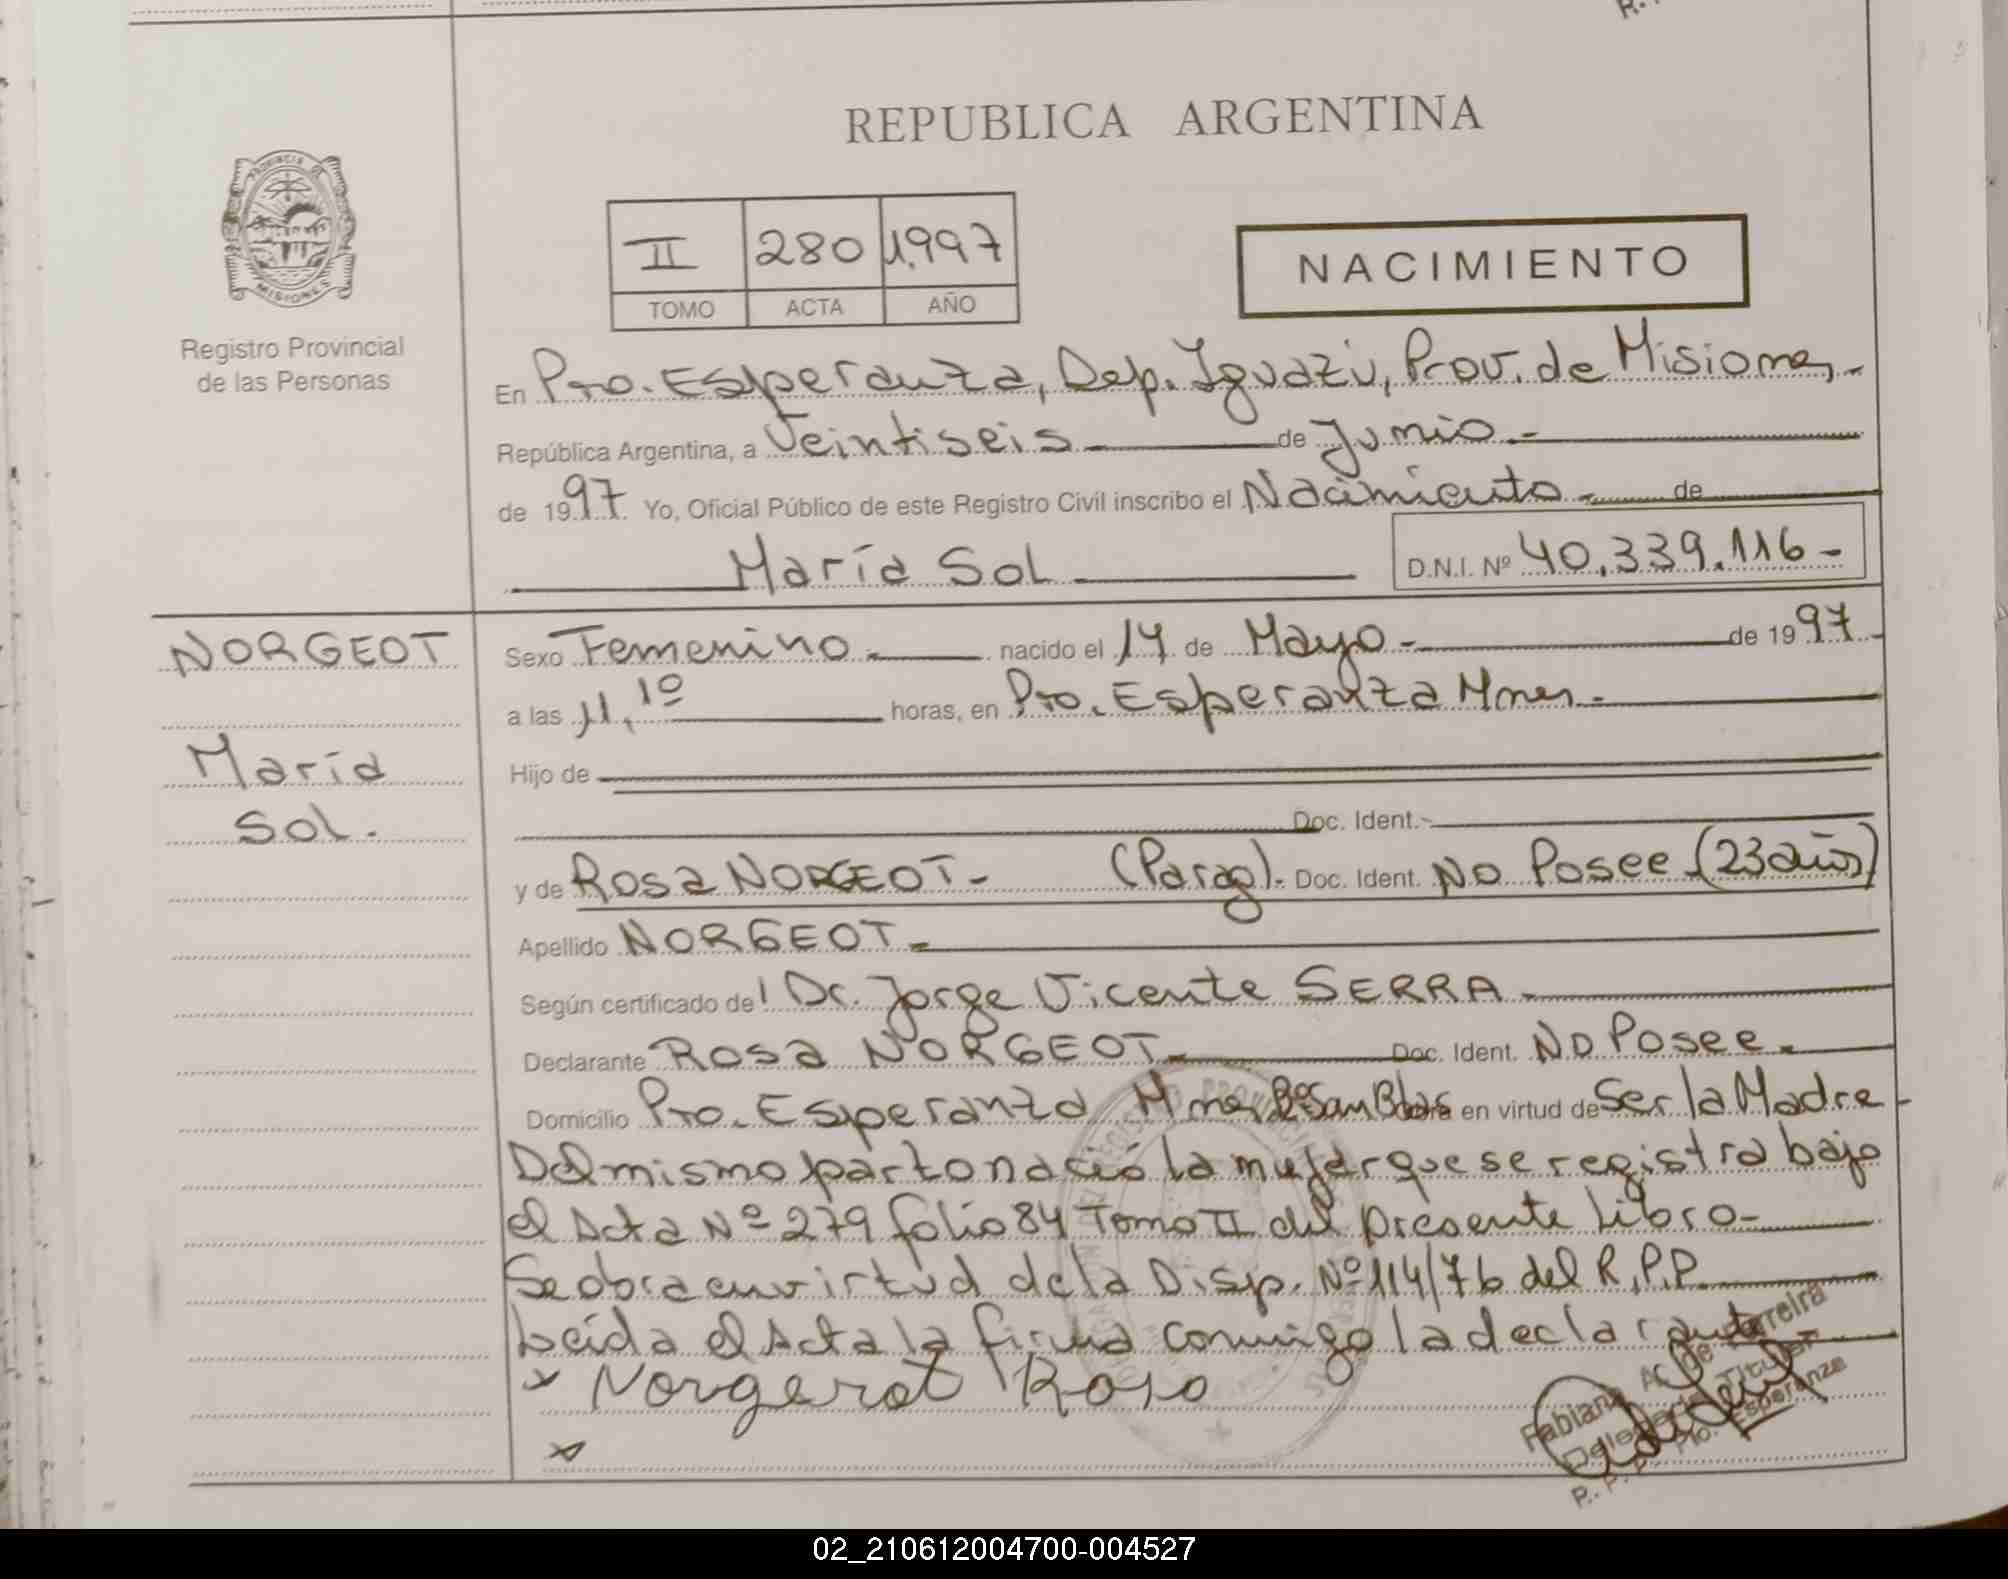 REPUBLICA ARGENTINA
PROVINCIA DE
MISIONES
Registro Provincial
de las Personas
II 280 1.997
TOMO ACTA AÑO
NACIMIENTO
En Pto. Esperanza, Dep. Iguazú, Prov. de Misiones,-
República Argentina, a Veintiseis de Junio.-
de 1997. Yo, Oficial Público de este Registro Civil inscribo el Nacimiento - de
María Sol D.N.I. Nº 40.339.116-
NORGEOT
María
Sol.
Sexo Femenino.- nacido el 14 de Mayo.- de 1997.-
a las 11,10 horas, en Pto. Esperanza Mnes.-
Hijo de
Doc. Ident.-
y de Rosa NORGEOT- (Parag).- Doc. Ident. No Posee (23 años)
Apellido NORGEOT-
Según certificado del Dr. Jorge Vicente SERRA.
Declarante Rosa NORGEOT- Doc. Ident. No Posee.
Domicilio Pto. Esperanza Mnes Bº San Blas en virtud de Ser la Madre-
Del mismo parto nació la mujer que se registra bajo
el Acta Nº 279 folio 84 Tomo II del presente Libro-
Se obra en virtud de la Disp. Nº 114/76 del R.P.P.
Leída el Acta la firma conmigo la declarante
x Norgerot Roso
x
Fabiana A. de Ferreira
Delegada Titular
R. P. P. Pto. Esperanza
02_210612004700-004527